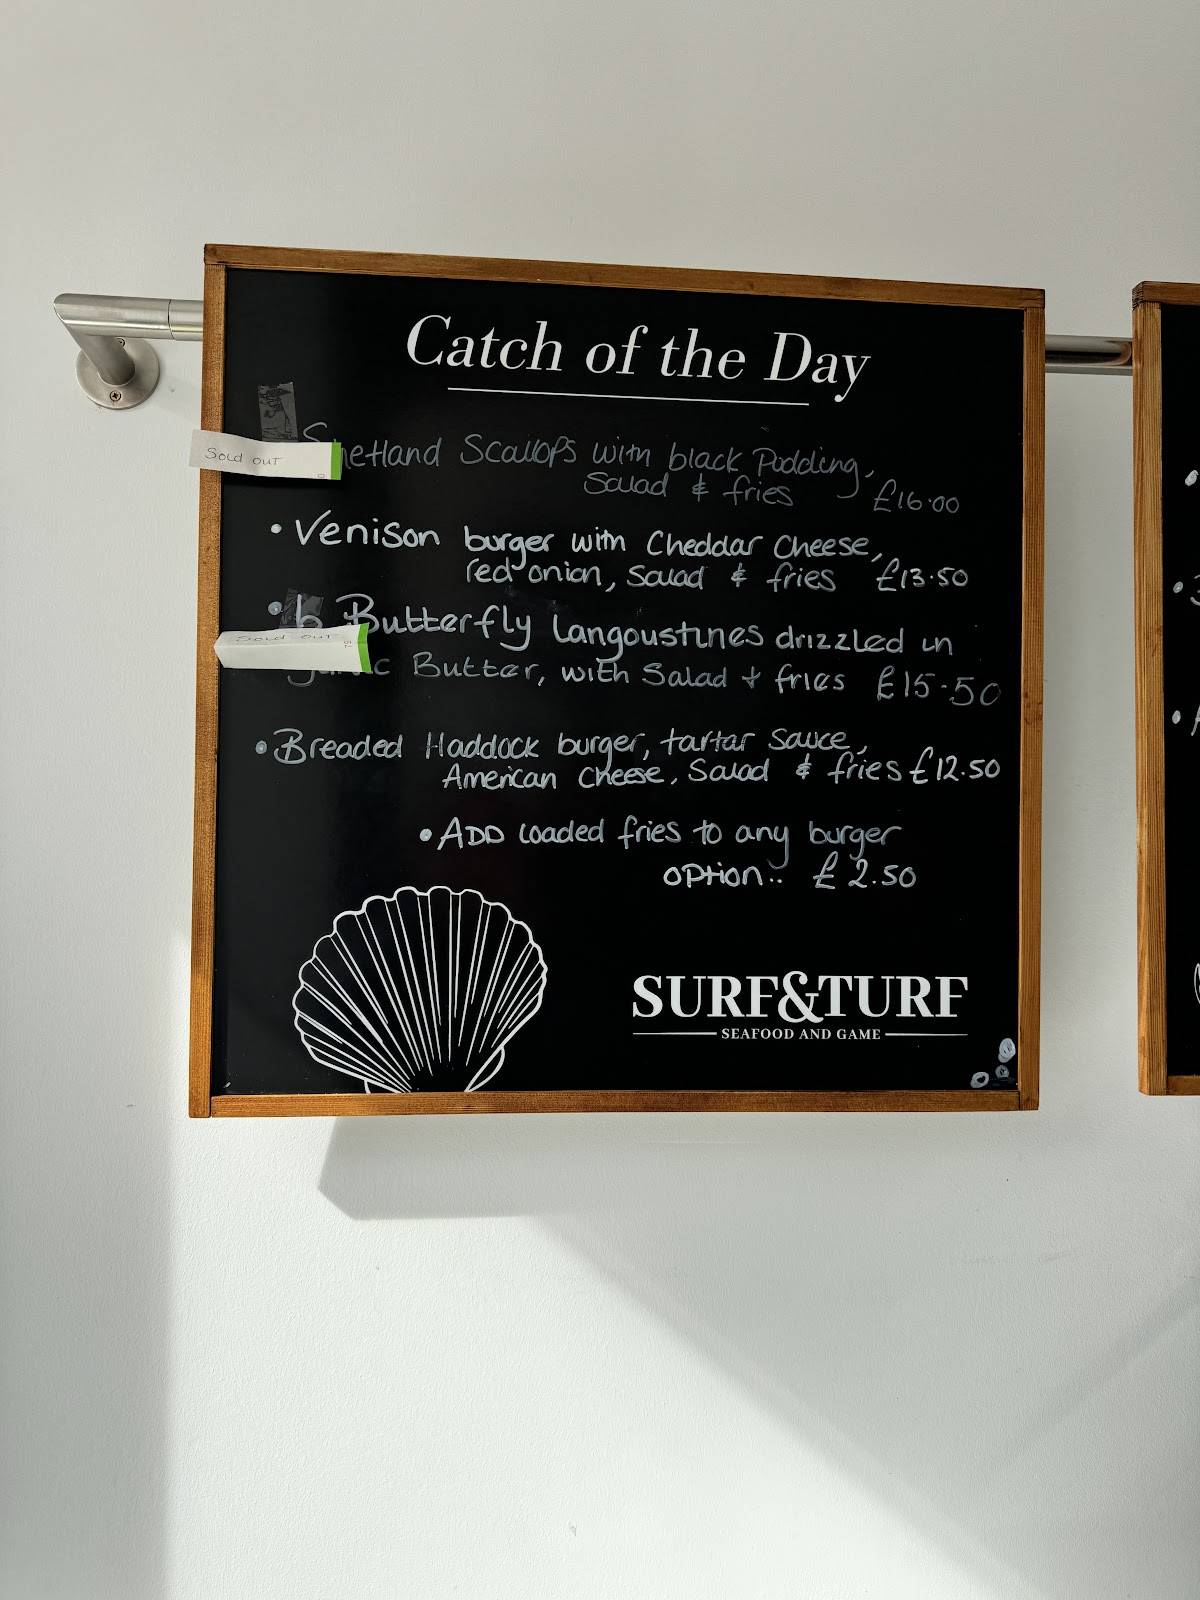 Catch of the Day
Sold out
Shetland Scallops with black Pudding,
Salad & fries £16.00
• Venison burger with Cheddar Cheese,
red onion, Salad & fries £13.50
• 6 Butterfly Langoustines drizzled in
Sold out
garlic Butter, with Salad + fries £15.50
• Breaded Haddock burger, tartar Sauce,
American Cheese, Salad & fries £12.50
• ADD loaded fries to any burger
option.. £2.50
SURF&TURF
SEAFOOD AND GAME